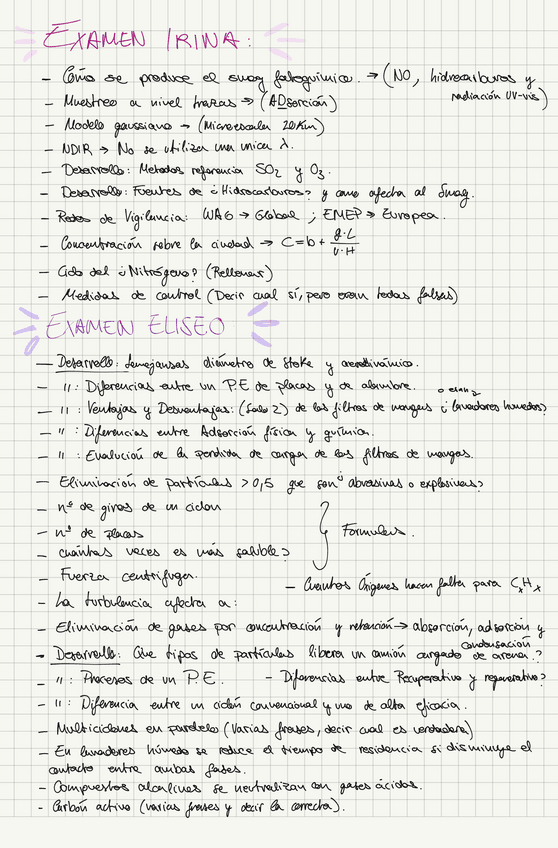 EXAMEN IRINA:
- Cómo se produce el smog fotoquímico. → (NO, hidrocarburos y
radiación UV-vis)
- Muestreo a nivel trazas → (ADsorción)
- Modelo gaussiano → (Microescala 20Km)
- NDIR → No se utiliza una unica λ.
- Desarrollo: Metodos referencia SO2 y O3.
- Desarrollo: Fuentes de ¿Hidrocarburos? y como afecta al Smog.
- Redes de Vigilancia: WAG → Global ; EMEP → Europea.
- Concentración sobre la ciudad → C = b + q·L / U·H
- Ciclo del ¿Nitrógeno? (Rellenar)
- Medidas de control (Decir cual sí, pero eran todas falsas)
EXAMEN ELISEO
- Desarrollo: Semejansas diámetro de Stoke y aerodinámico.
- 11: Diferencias entre un P.E de placas y de alambre.
- 11: Ventajas y Desventajas: (Solo 2) de los filtros de mangas ¿lavadores humedos?
- 11: Diferencias entre Adsorción física y química.
- 11: Evalución de la perdida de carga de los filtros de mangas.
- Eliminación de partículas > 0,5 que son ¿abrasivas o explosivas?
- nº de giros de un ciclon
- nº de placas
- cuántas veces es más soluble?
} Formulas.
- Fuerza centrifuga.
- Cuantos Oxígenos hacen falta para CxHx
- La turbulencia afecta a:
- Eliminación de gases por concentración y retención → absorción, adsorción y
condensación
- Desarrollo: Que tipos de partículas libera un camión cargado de arena?
- 11: Procesos de un P.E. - Diferencias entre Recuperativo y regenerativo?
- 11: Diferencia entre un ciclón convencional y uno de alta eficacia.
- Multiciclones en paralelo (Varias frases, decir cual es verdadera)
- En lavadores húmedo se reduce el tiempo de residencia si disminuye el
contacto entre ambas fases.
- Compuestos alcalinos se neutralizan con gases ácidos.
- Carbón activo (varias frases y decir la correcta).